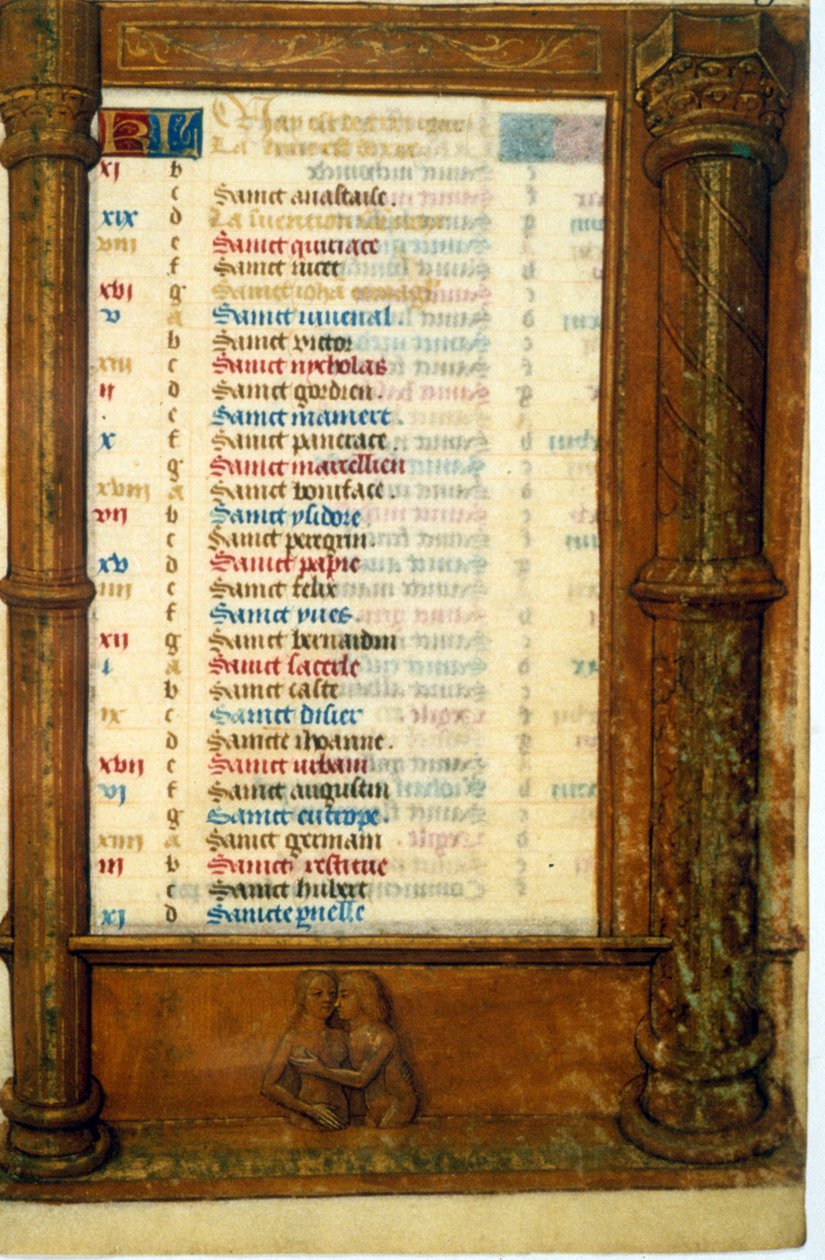 KL May est
La lune est
xi b
c Sainct anastaise.
xix d La invention
viii e Sainct quiriace
f Sainct nicet
xvi g Sainct
v a Sainct iuvenal.
b Sainct victor
xiii c Sainct nycholas
ii d Sainct gordien.
e Sainct mamert.
x f Sainct pancrace.
g Sainct marcellien
xviii a Sainct boniface
vii b Sainct ysidore
c Sainct peregrin.
xv d Sainct papie
iiii e Sainct felix
f Sainct yves.
xii g Sainct bernardin
i a Sainct sacerle
b Sainct caste
ix c Sainct disier
d Saincte ihoanne.
xvii e Sainct urbain
vi f Sainct augustin
g Sainct eutrope.
xiiii a Sainct germain
iii b Sainct restitue
c Sainct hubert
xi d Saincte pnelle